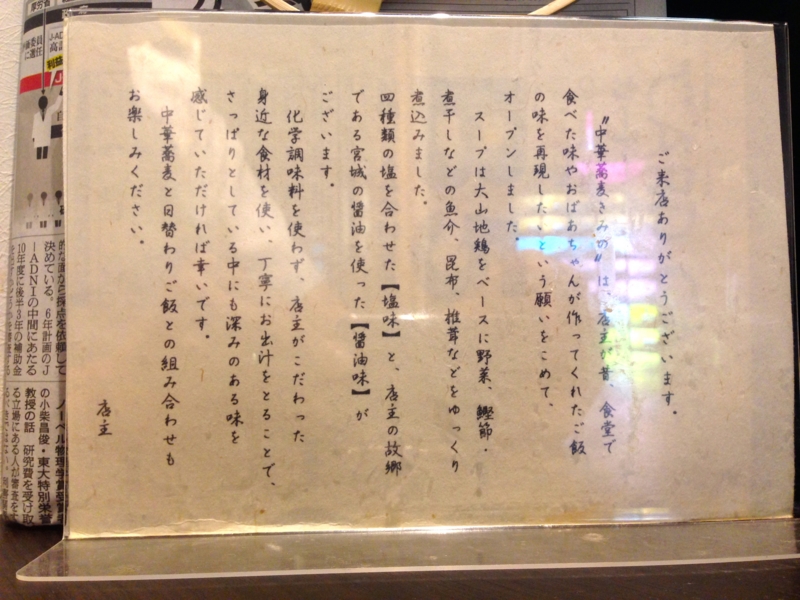 ご来店ありがとうございます。
〝中華蕎麦きみの〟は、店主が昔、食堂で
食べた味やおばあちゃんが作ってくれたご飯
の味を再現したいという願いをこめて、
オープンしました。
スープは大山地鶏をベースに野菜、鰹節・
煮干しなどの魚介、昆布、椎茸などをゆっくり
煮込みました。
四種類の塩を合わせた【塩味】と、店主の故郷
である宮城の醤油を使った【醤油味】が
ございます。
化学調味料を使わず、店主がこだわった
身近な食材を使い、丁寧にお出汁をとることで、
さっぱりとしている中にも深みのある味を
感じていただければ幸いです。
中華蕎麦と日替わりご飯との組み合わせも
お楽しみください。
店主
的な面から採点を依頼して
決めている。6年計画のJ
―ADNIの中間にあたる
10年度に後半3年の補助金
ノーベル物理学賞受賞
の小柴昌俊・東大特別栄誉
教授の話 研究費を受け取
る立場にある人が審査を